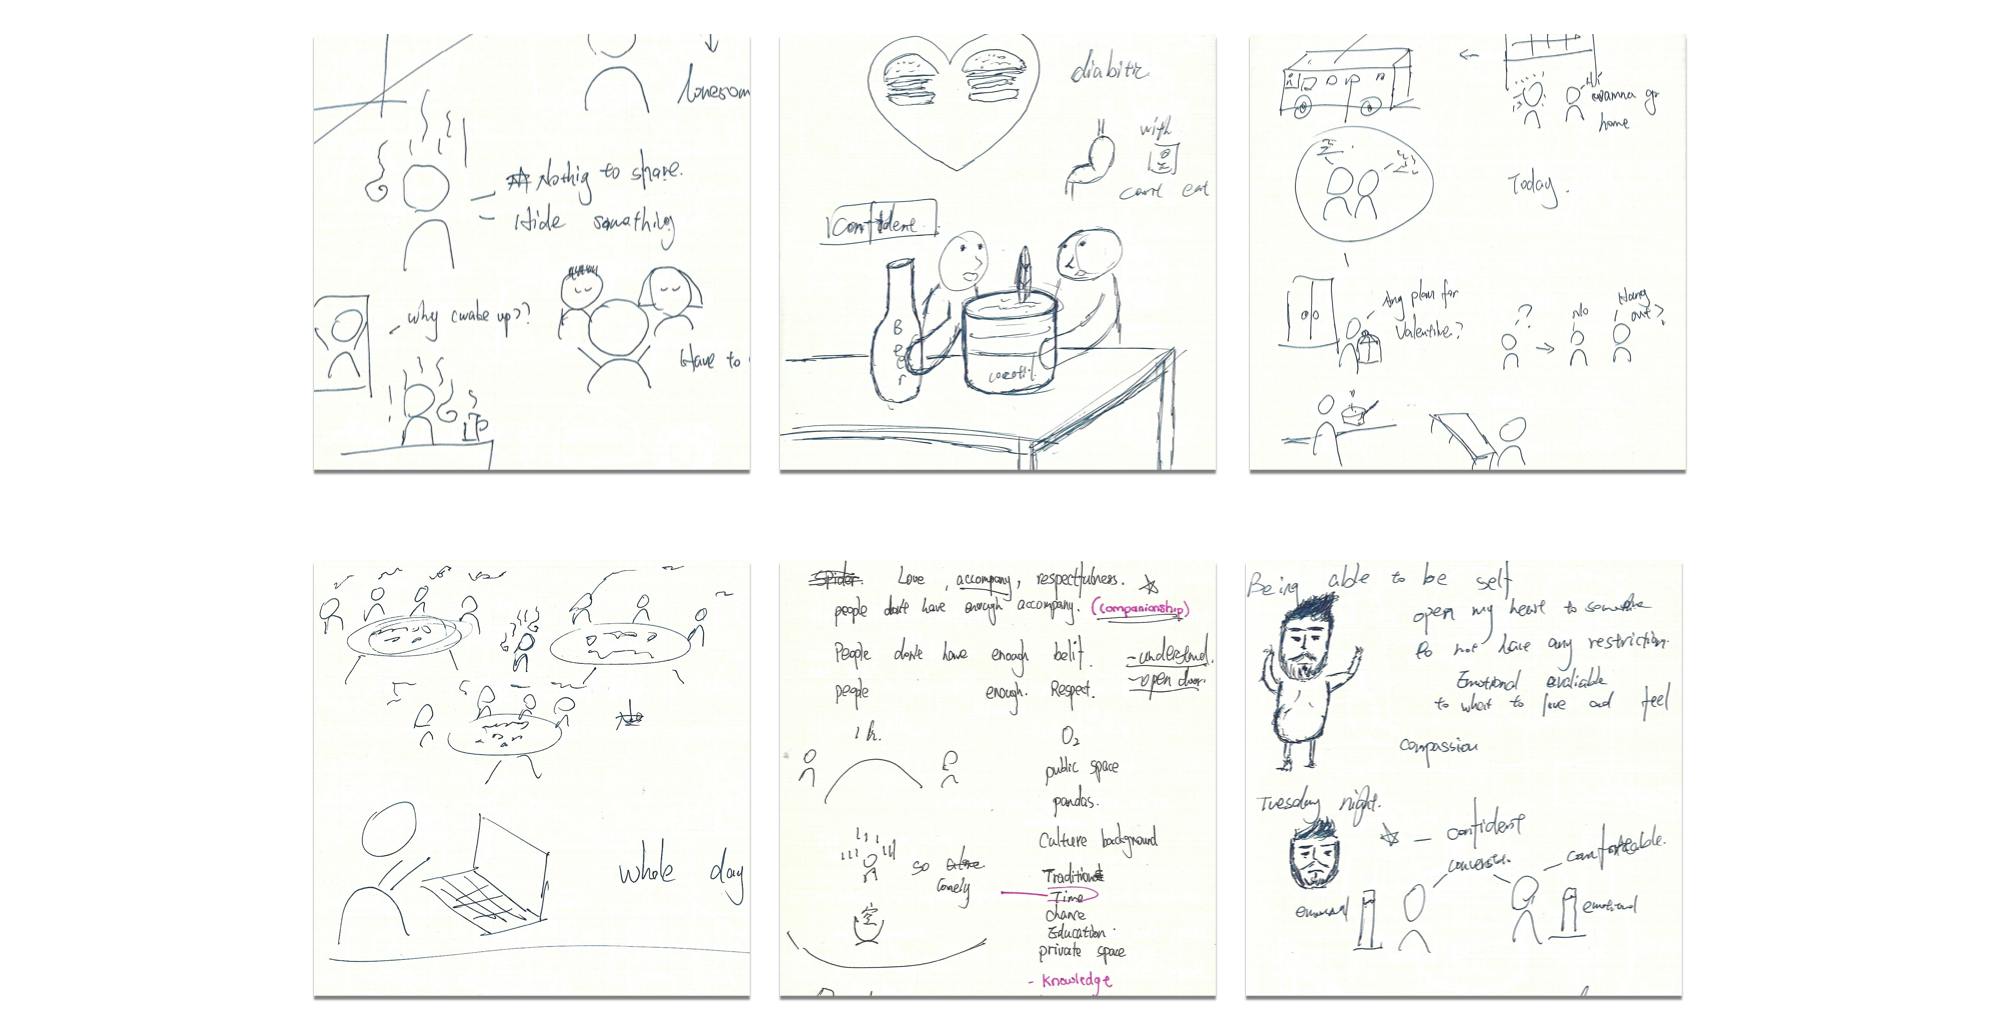 lonesom
Nothig to share.
Hide somathing
why cwake up??
Have to
diabitic
with
cant eat
Confident.
Beer
Hi
wamna go
home
Today.
Any plan for
Valentine?
?
No
Hang
out?
whole day
Spider. Love, accompany, respectfulness.
people don't have enough accompany. (companionship)
People don't have enough belif.
- understand.
- open door.
people enough. Respect.
1 h.
O2
public space
pandas.
Culture background
so
lonely
空
Tradition
Time
chance
Education.
private space
- Knowledge
Being able to be self
open my heart to
to not have any restriction.
Emotional avaliable
to what to love and feel
compassion
Tuesday night.
- confident
comfortable.
emotional